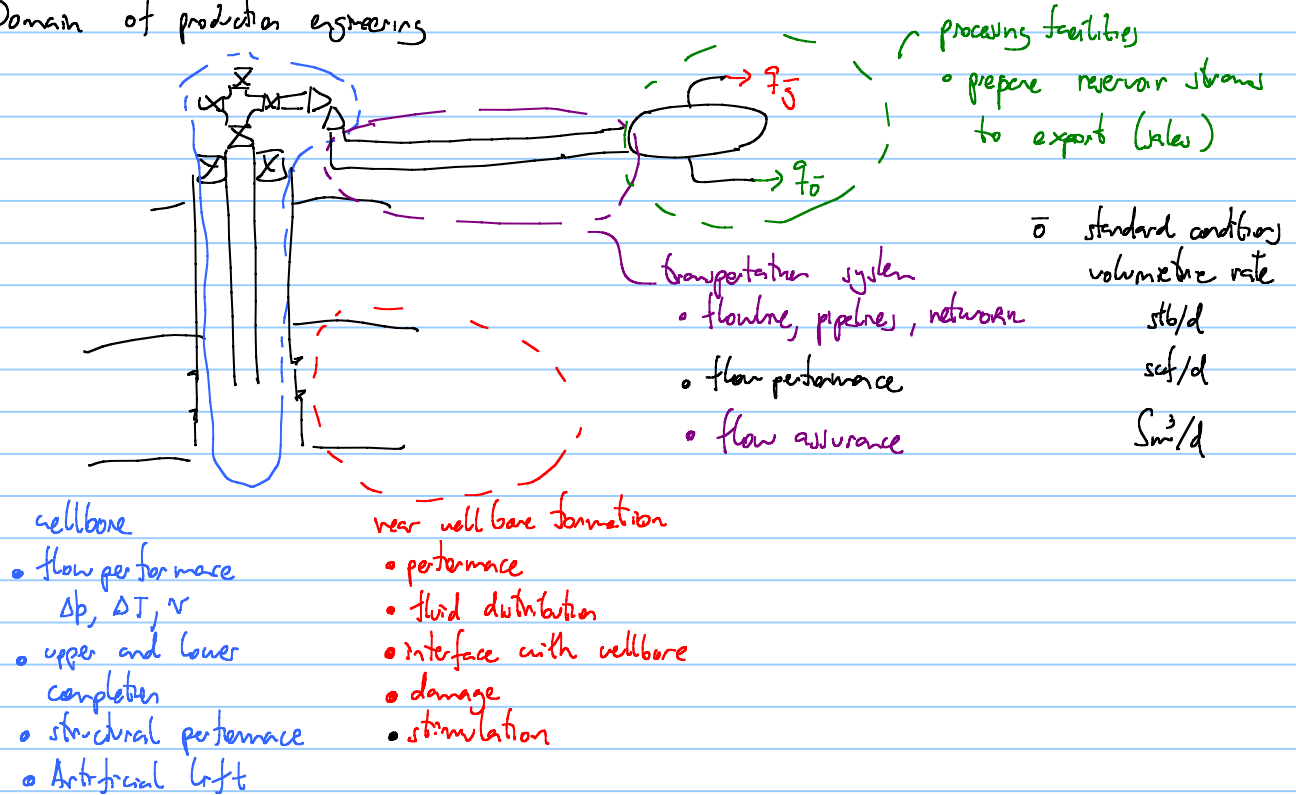 Domain of production engineering
processing facilities
• prepare reservoir streams
to export (sales)
q_g̅
q_o̅
o̅ standard conditions
volumetric rate
stb/d
scf/d
Sm³/d
transportation system
• flowline, pipelines, network
• flow performance
• flow assurance
wellbore
• flow performace
Δp, ΔT, v
• upper and lower
completion
• structural performace
• Artificial lift
near wellbore formation
• performace
• fluid distribution
• interface with wellbore
• damage
• stimulation